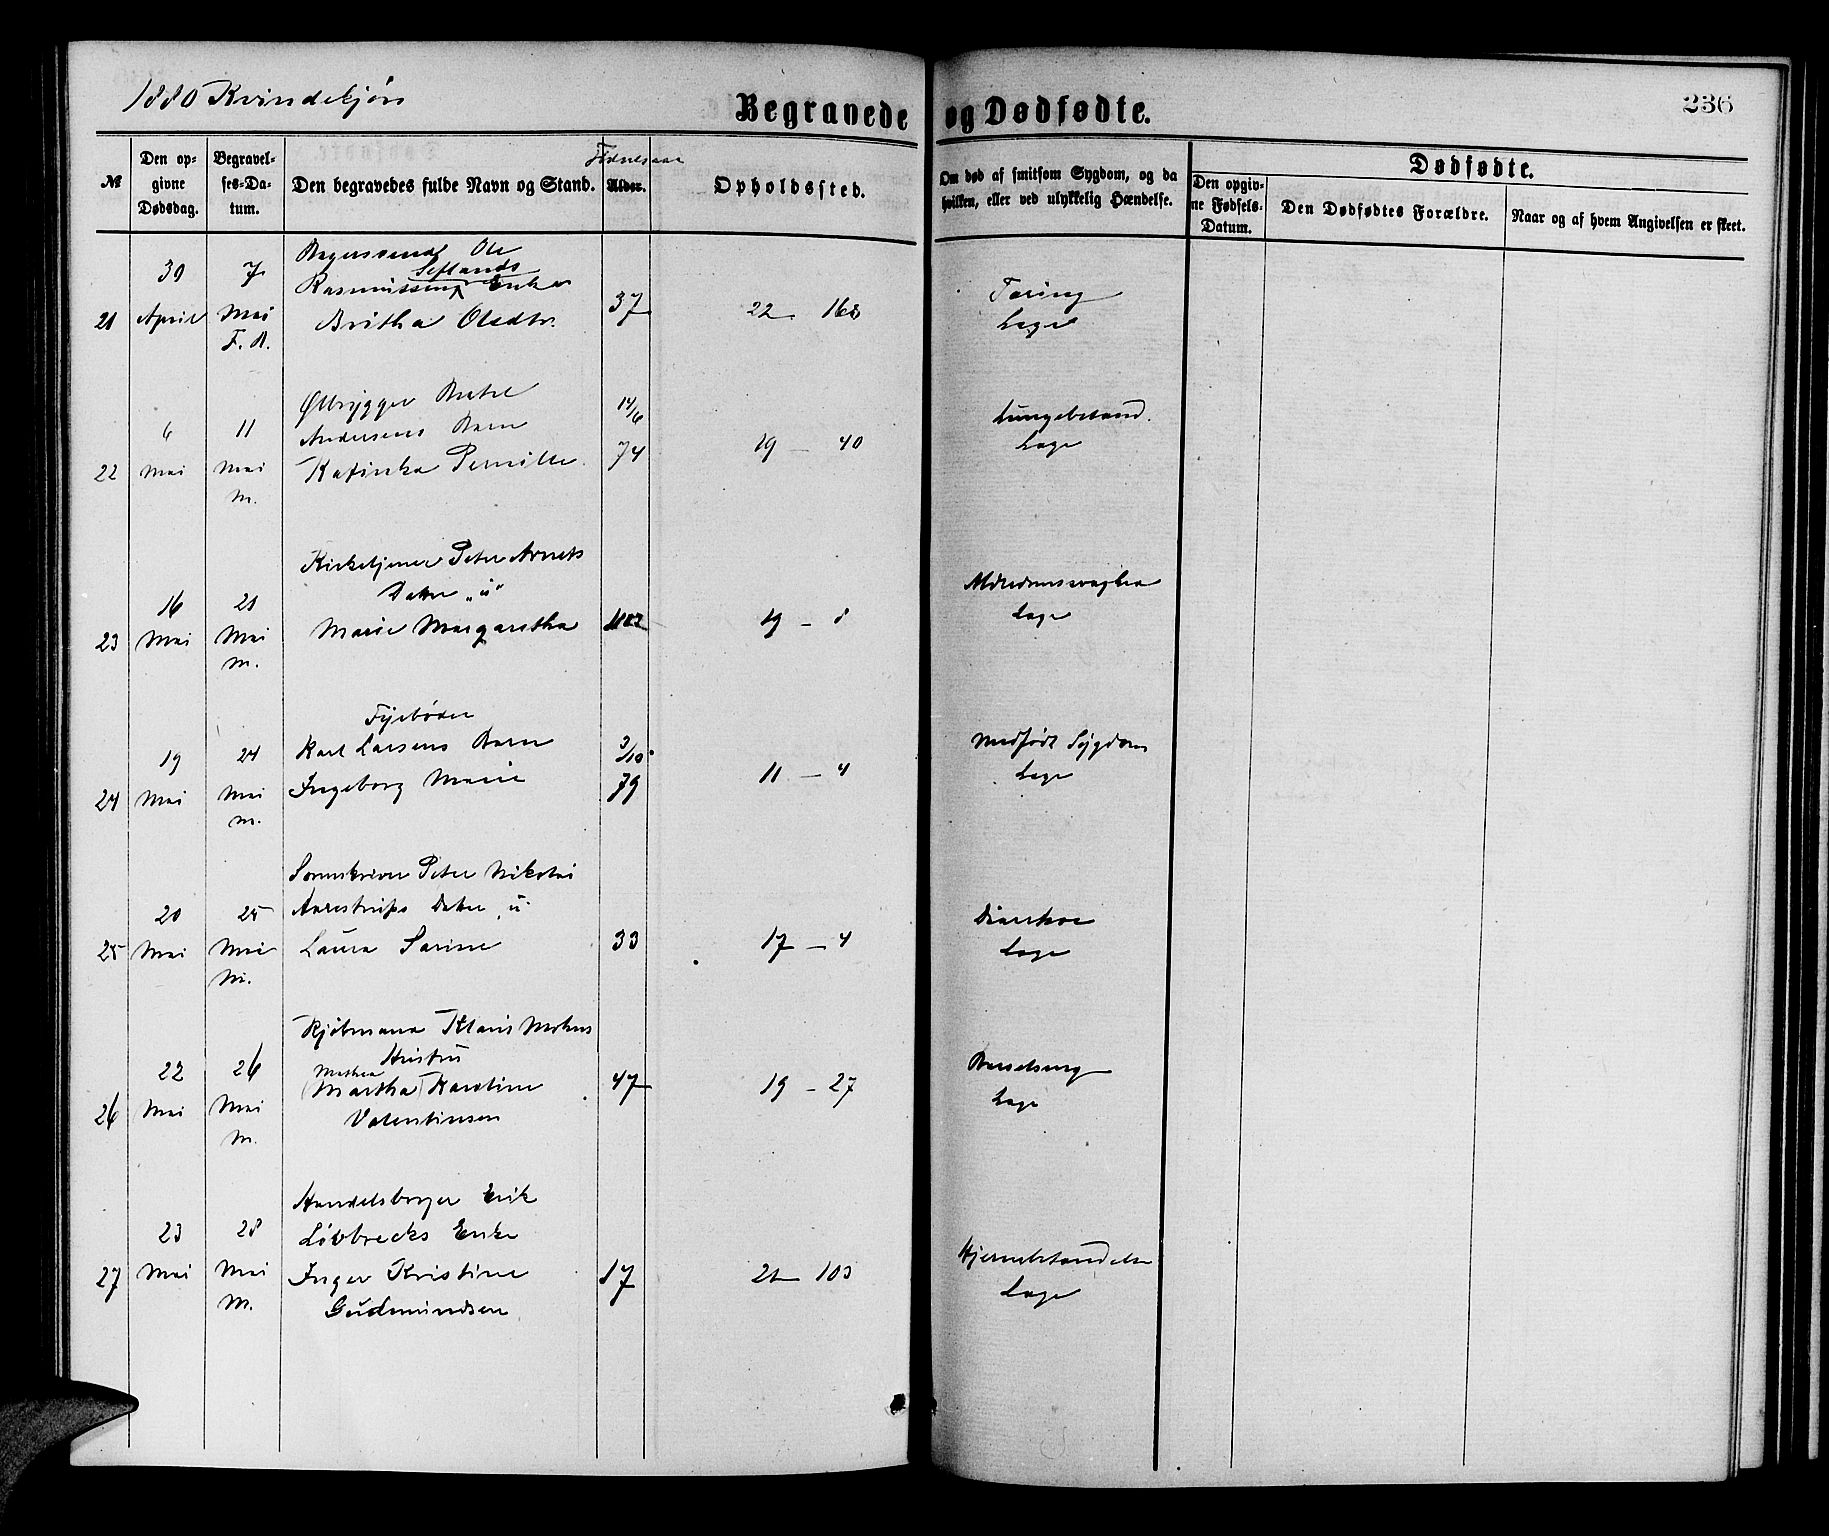 1880 Kvindekjøn
Begravede og Dødfødte.
236
№
Den op-
givne
Dødsdag.
Begravel-
ses-Da-
tum.
Den begravedes fulde Navn og Stand.
Fødselsaar
Alder.
Opholdssted.
Om død af smitsom Sygdom, og da
hvilken, eller ved ulykkelig Hændelse.
Dødfødte.
Den opgiv-
ne Fødsels-
Datum.
Den Dødfødtes Forældre.
Naar og af hvem Angivelsen er skeet.
21
30
April
7
Mai
F. R.
Bagersvend Ole
Seflands
Rasmussens Enke
Britha Olsdtr.
37
22 168
Tæring
Læge
22
6
Mai
11
Mai
M.
Ølbrygger Bertel
Andersens Barn
Kafinka Pernille
14/6
74
19 — 40
Lungebetænd.
Læge
23
16
Mai
21
Mai
M.
Kirketjener Peter Arnets
Datter „u"
Marie Margaretha
19 — 8
Alderdomssvaghed
Læge
24
19
Mai
24
Mai
M.
Fyrbøder
Karl Larsens Barn
Ingeborg Marie
3/10
79
11 — 4
Medfødt Sygdom
Læge
25
20
Mai
25
Mai
M.
Sorenskriver Peter Nikolai
Aarestrups Datter „u
Laura Sarine
33
17 — 4
Diarrhoe
Læge
26
22
Mai
26
Mai
M.
Kjøbmand Klaus Mohns
Hustru
Mathea
(Martha) Karoline
Valentinsen
47
19 — 27
Barselseng
Læge
27
23
Mai
28
Mai
M.
Handelsborger Erik
Løvbrecks Enke
Inger Kristine
Gudmundsen
17
21 — 103
Hjernebetændelse
Læge